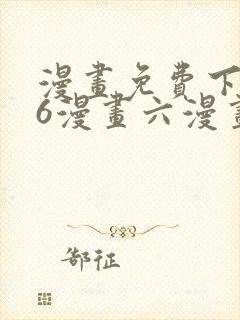 漫畫免費下
6漫畫六漫畫
郜征